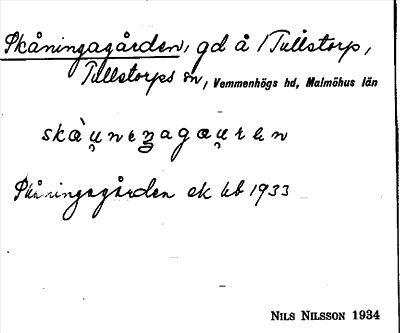 Skåningagården, gd å 1 Tullstorp,
Tullstorps sn, Vemmenhögs hd, Malmöhus län
Skåningagården ek kb 1933
NILS NILSSON 1934